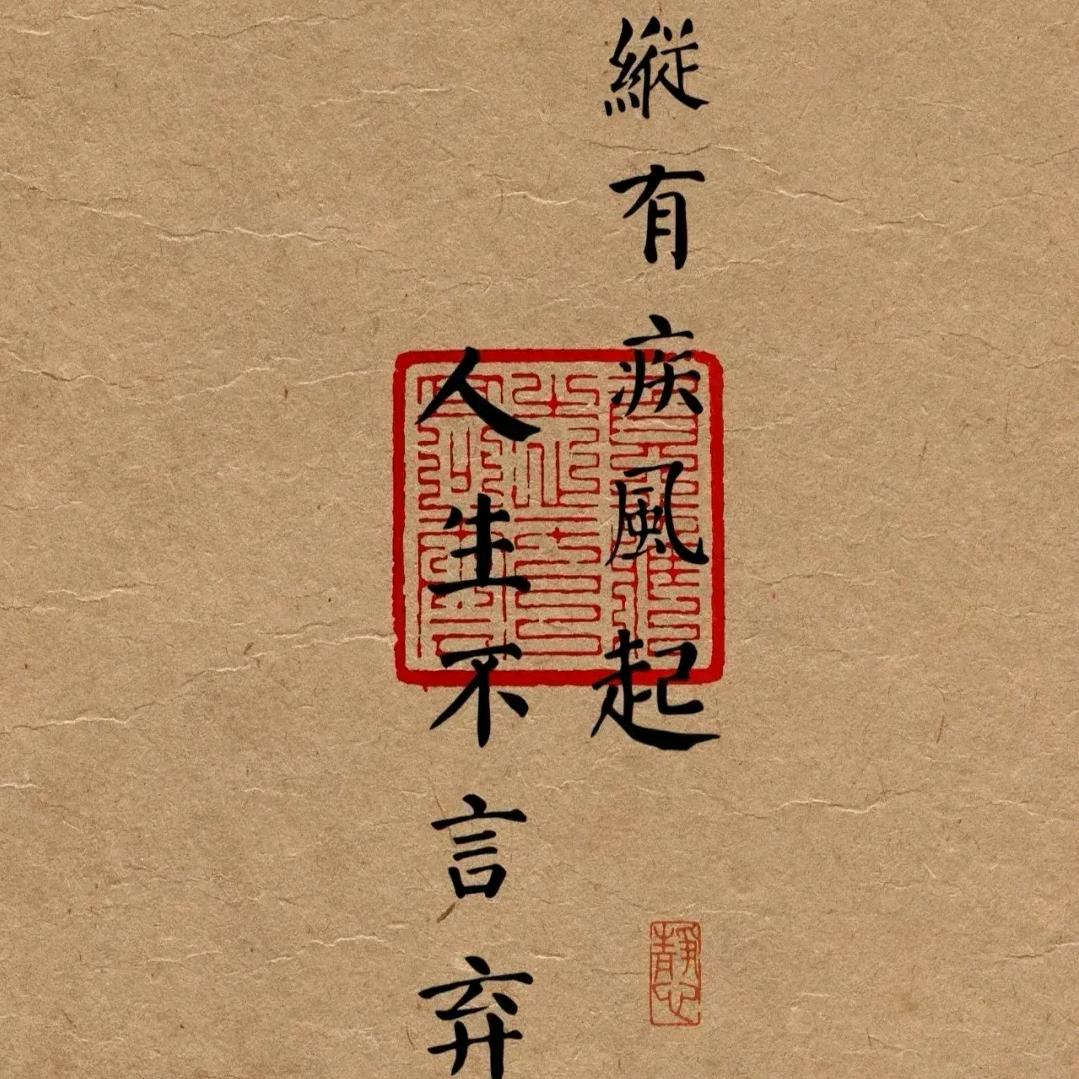 縱有疾風起
人生不言弃
靜心